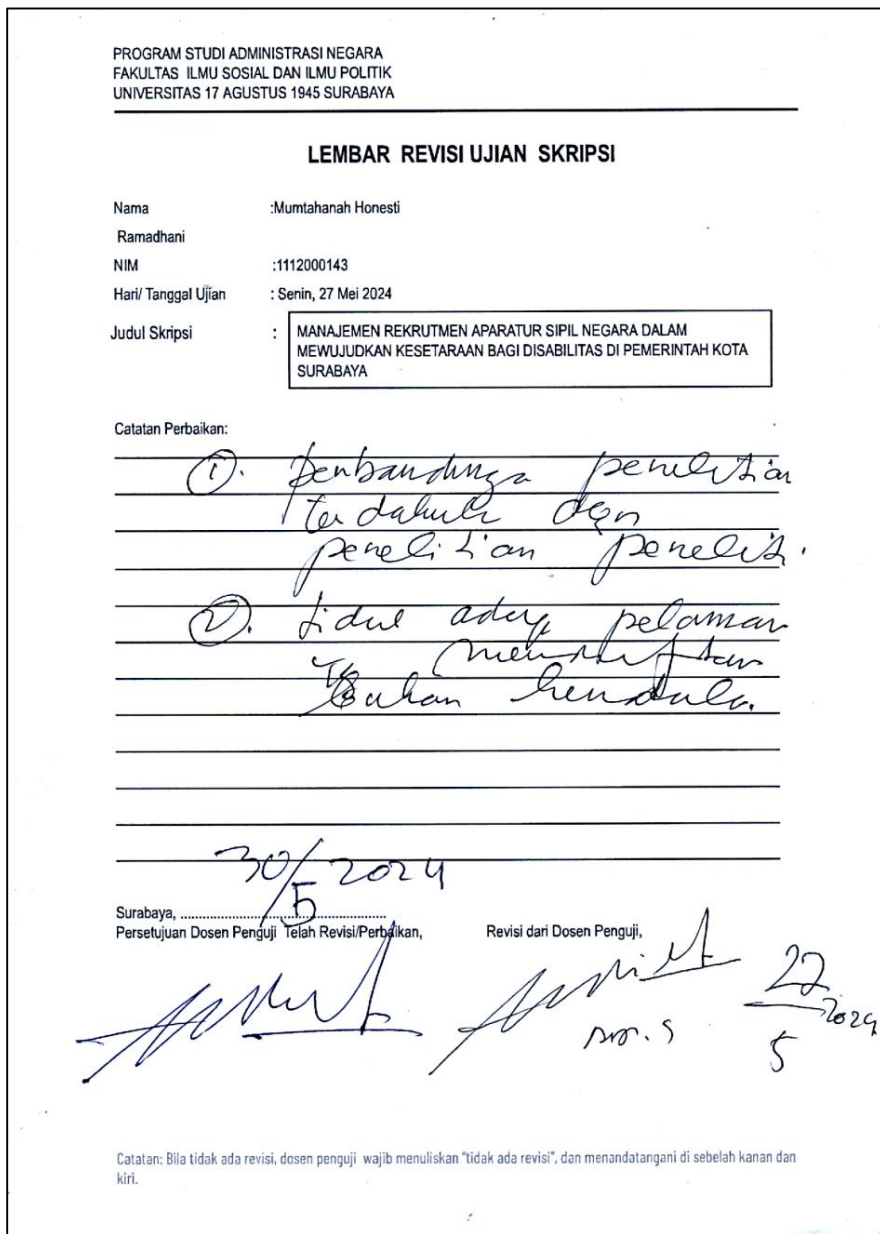 PROGRAM STUDI ADMINISTRASI NEGARA
FAKULTAS ILMU SOSIAL DAN ILMU POLITIK
UNIVERSITAS 17 AGUSTUS 1945 SURABAYA
LEMBAR REVISI UJIAN SKRIPSI
Nama :Mumtahanah Honesti
Ramadhani
NIM :1112000143
Hari/ Tanggal Ujian : Senin, 27 Mei 2024
Judul Skripsi : MANAJEMEN REKRUTMEN APARATUR SIPIL NEGARA DALAM
MEWUJUDKAN KESETARAAN BAGI DISABILITAS DI PEMERINTAH KOTA
SURABAYA
Catatan Perbaikan:
①. penelitian
terdahulu dgn
penelitian peneliti.
②. pelamar
bukan kendala.
30/5 2024
Surabaya, ..........................................
Persetujuan Dosen Penguji Telah Revisi/Perbaikan, Revisi dari Dosen Penguji,
27/5 2024
Catatan: Bila tidak ada revisi, dosen penguji wajib menuliskan "tidak ada revisi", dan menandatangani di sebelah kanan dan
kiri.